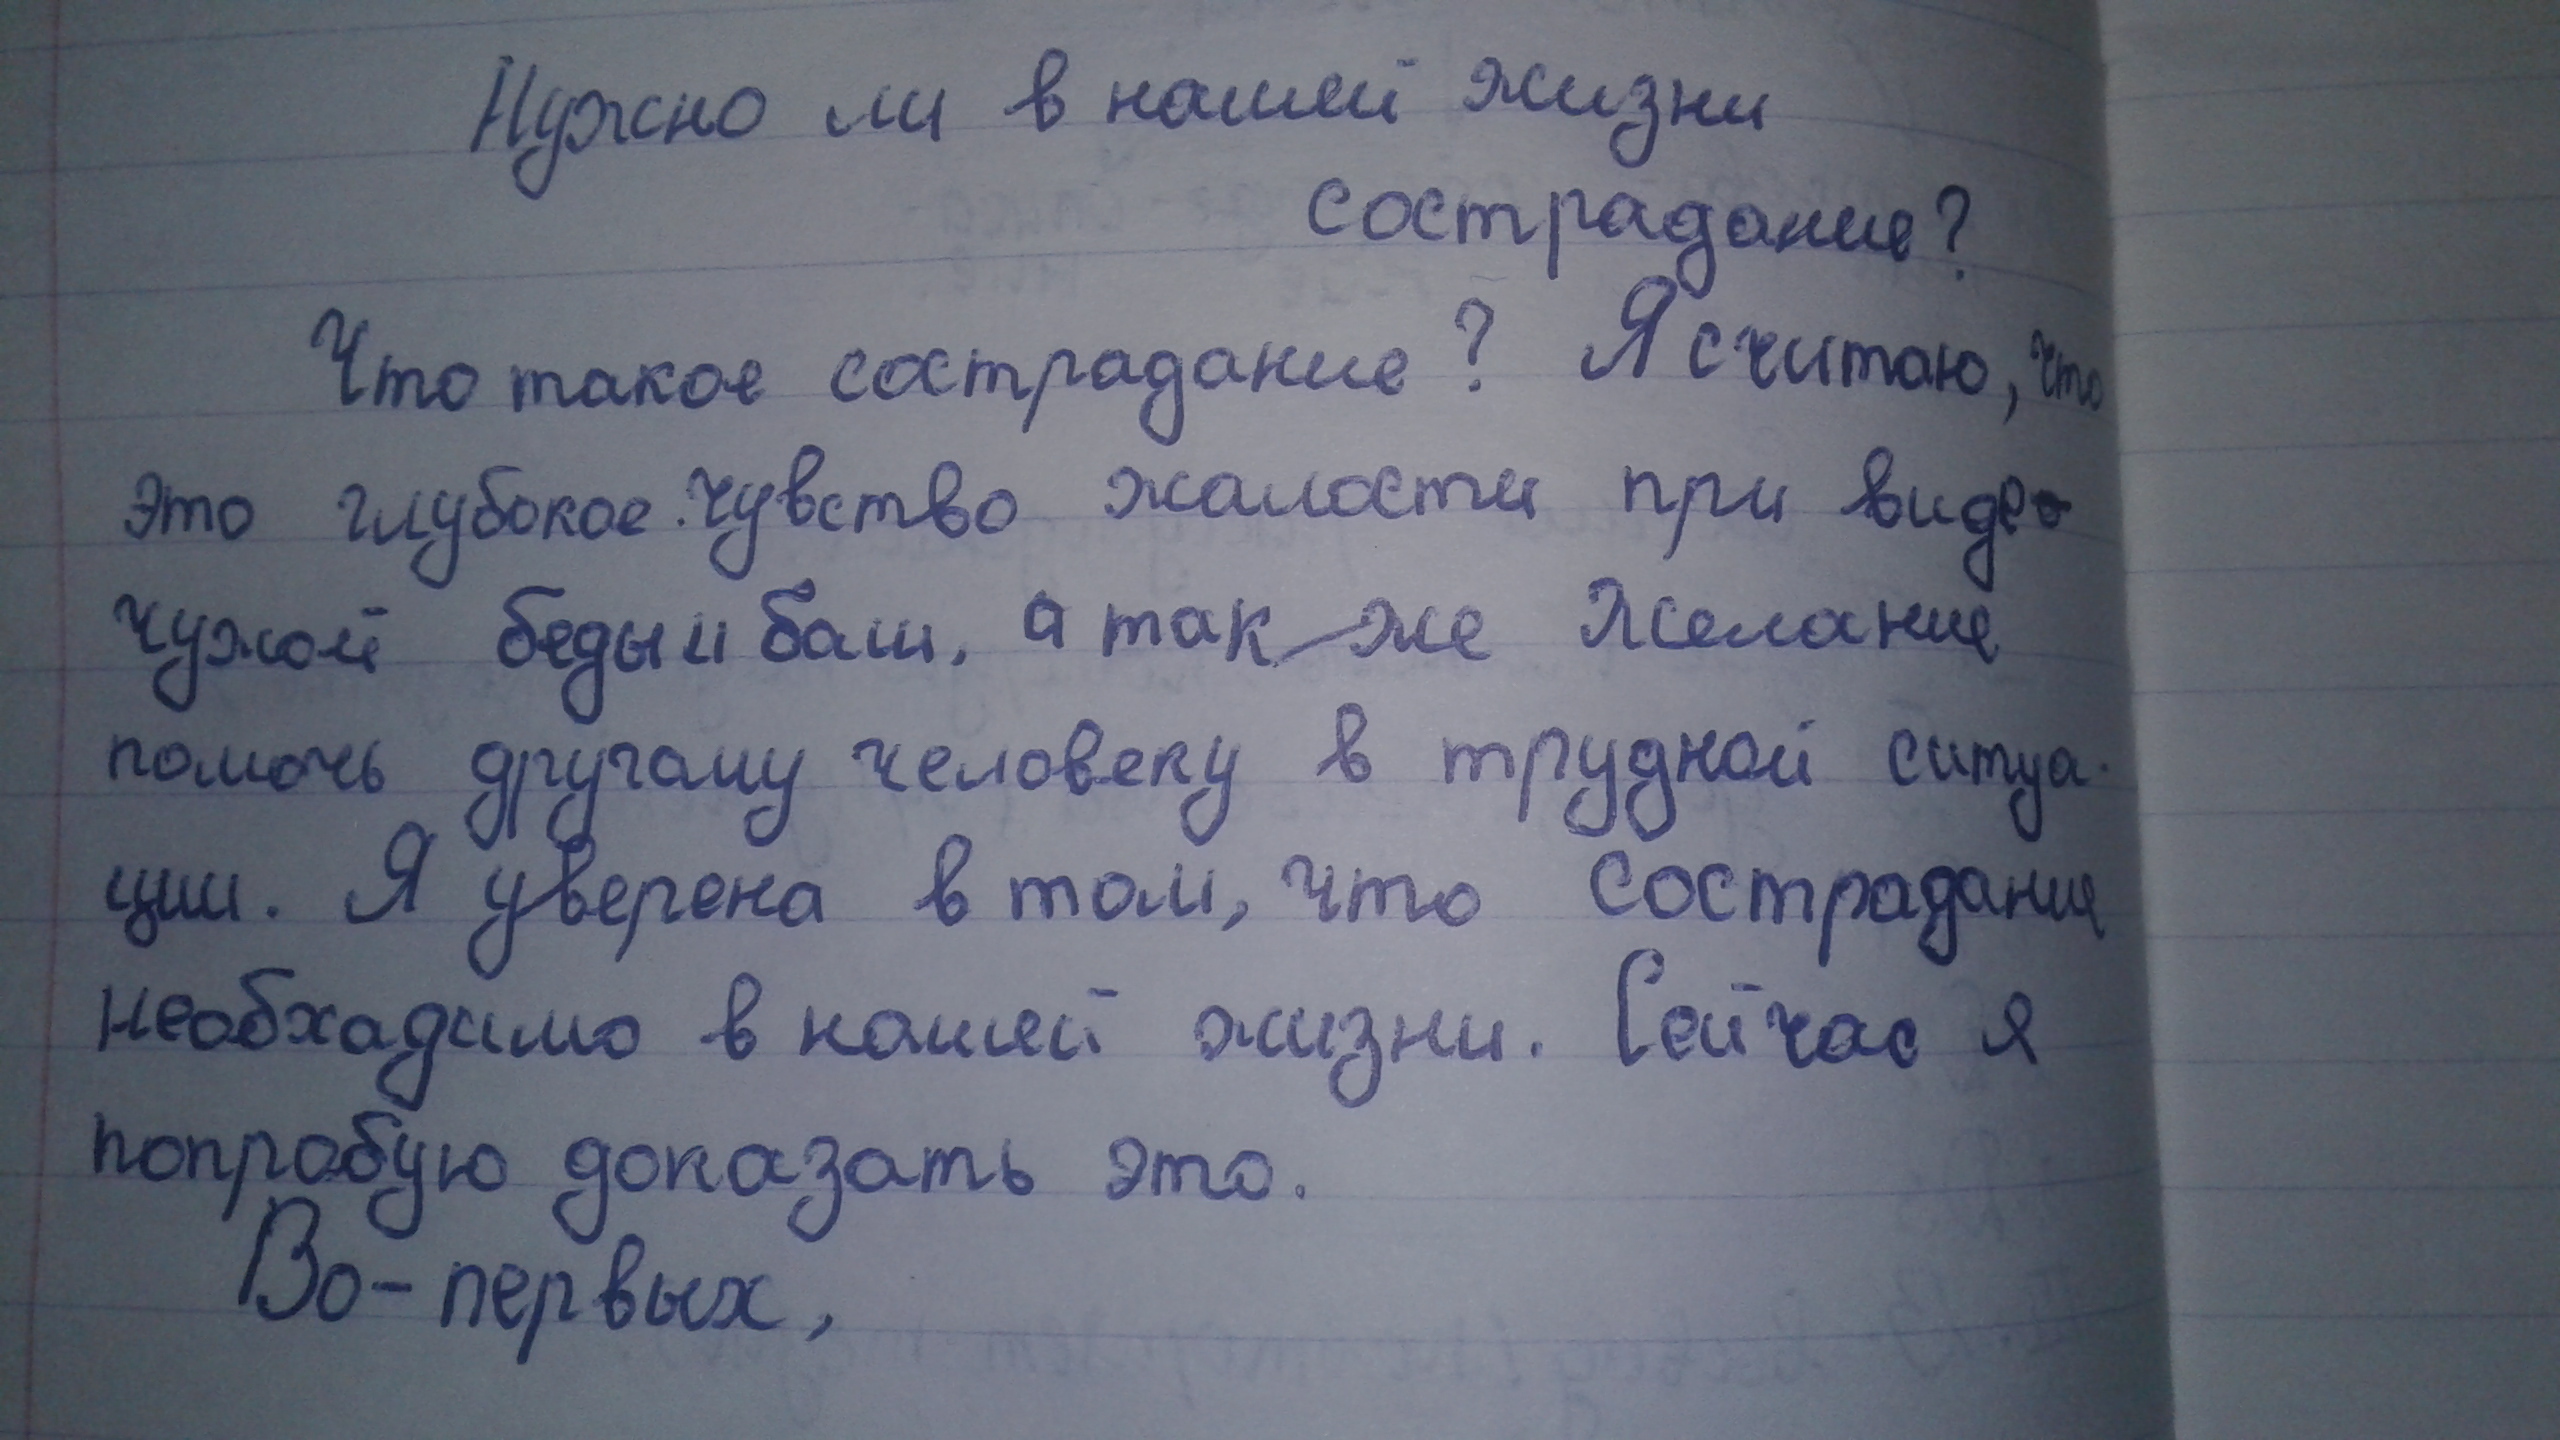 Нужно ли в нашей жизни
сострадание?
Что такое сострадание? Я считаю, что
это глубокое чувство жалости при виде
чужой беды и боли, а так же желание
помочь другому человеку в трудной ситуа-
ции. Я уверена в том, что сострадание
необхадимо в нашей жизни. Сейчас я
попробую доказать это.
Во-первых,